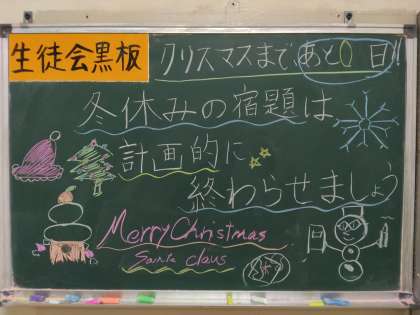 生徒会黒板
クリスマスまで、あと0日!!
冬休みの宿題は、
計画的に
終わらせましょう
Merry Christmas
Santa claus